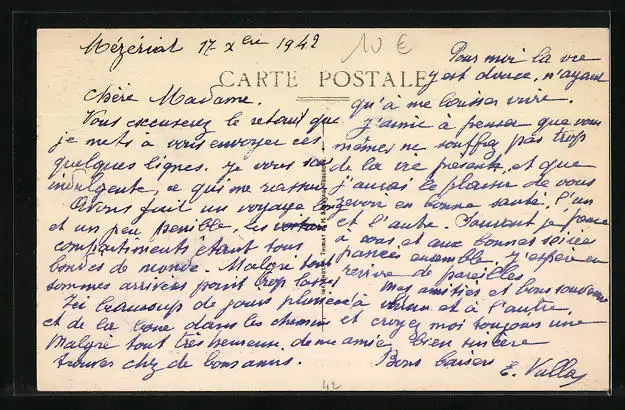 Mézériat 17 Xbre 1942
10 €
CARTE POSTALE
Chère Madame.
Vous excuserez le retard que
je mets à vous envoyer ces
quelques lignes. Je vous sais
indulgente, ce qui me rassure
Avons fait un voyage long
et un peu pénible, les
compartiments étant tous
bondés de monde. Malgré tout
sommes arrivées point trop tard
Ici beaucoup de jours pluvieux
et de la boue dans les chemins
Malgré tout très heureuse de me
trouver chez de bons amis.
Pour moi la vie
y est douce, n'ayant
qu'à me laisser vivre.
J'aime à penser que vous
mêmes ne souffrez pas trop
de la vie présente, et que
j'aurai le plaisir de vous
revoir en bonne santé, l'un
et l'autre. Souvent je pense
à vous, et aux bonnes soirées
passées ensemble. J'espère en
revivre de pareilles.
Mes amitiés et bons souvenirs
à l'un et à l'autre,
et croyez moi toujours une
amie bien sincère
Bons baisers
E. Vallas
42